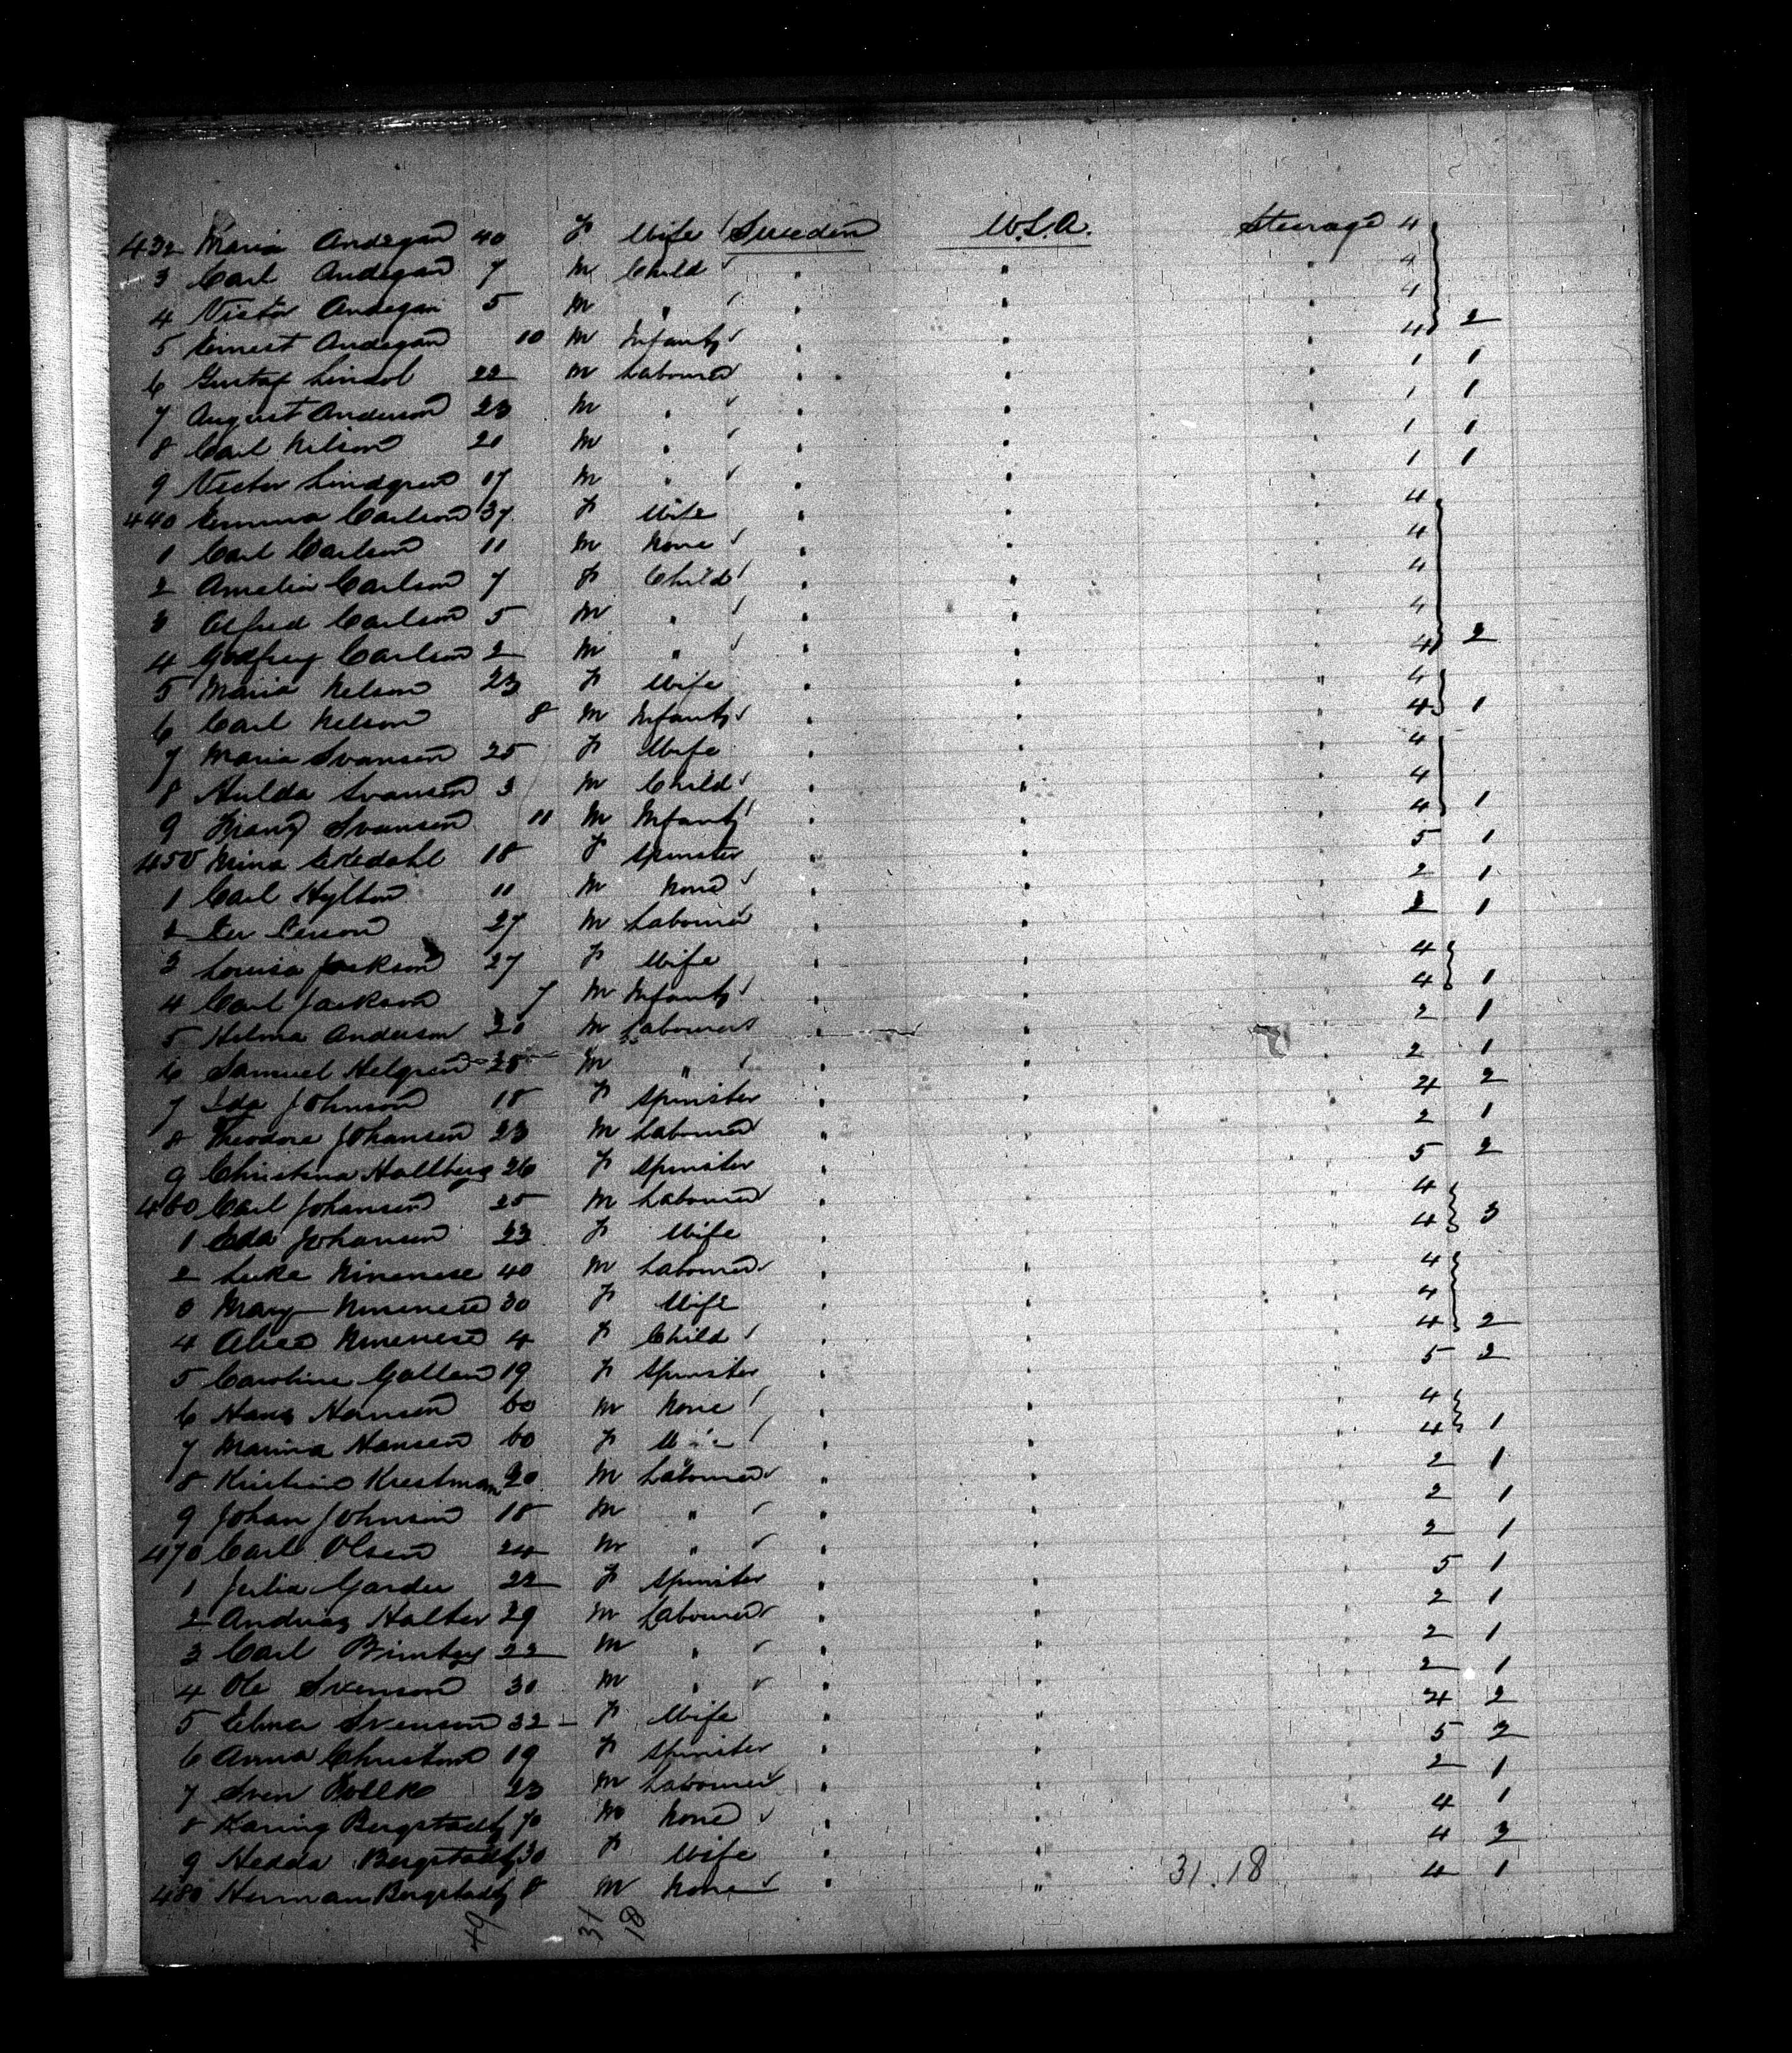 432 Maria Andegan 40 F Wife Sweden U.S.A. Steerage 4
3 Carl Andegan 7 M Child " " " 4
4 Victor Andegan 5 M " " " " 4
5 Ernest Andegan 10 M Infant " " " 4 2
6 Gustaf Lindol 22 M Labourer " " " 1 1
7 August Anderson 23 M " " " " 1 1
8 Carl Nilson 20 M " " " " 1 1
9 Victor Lindgren 17 M " " " " 1 1
440 Emma Carlson 37 F Wife " " " 4
1 Carl Carlson 11 M None " " " 4
2 Amelia Carlson 7 F Child " " " 4
3 Alfred Carlson 5 M " " " " 4
4 Godfrey Carlson 2 M " " " " 4 3
5 Maria Nelson 23 F Wife " " " 4
6 Carl Nelson 8 M Infant " " " 4 1
7 Maria Svanson 25 F Wife " " " 4
8 Hulda Svanson 3 M Child " " " 4
9 Franz Svanson 11 M Infant " " " 4 1
450 Mina Ekedahl 18 F Spinster " " " 5 1
1 Carl Hylton 11 M None " " " 2 1
2 Per Person 27 M Labourer " " " 2 1
3 Louisa Jackson 27 F Wife " " " 4
4 Carl Jackson 7 M Infant " " " 4 1
5 Helma Anderson 20 M Labourer " " " 2 1
6 Samuel Helgren 25 M " " " " 2 1
7 Ida Johnson 18 F Spinster " " " 4 2
8 Theodore Johansen 23 M Labourer " " " 2 1
9 Christina Hallberg 26 F Spinster " " " 5 2
460 Carl Johansen 25 M Labourer " " " 4
1 Eda Johansen 23 F Wife " " " 4 3
2 Luke 40 M Labourer " " " 4
3 Mary 30 F Wife " " " 4
4 Alice 4 F Child " " " 4 2
5 Caroline Gallen 19 F Spinster " " " 5 2
6 Hans Hansen 60 M None " " " 4
7 Marina Hansen 60 F " " " 4 1
8 Kristine Krestman 20 M Labourer " " " 2 1
9 Johan Johnson 18 M " " " " 2 1
470 Carl Olsen 24 M " " " " 2 1
1 Julia Garder 22 F Spinster " " " 5 1
2 Andreas Halter 29 M Labourer " " " 2 1
3 Carl 22 M " " " " 2 1
4 Ole Svenson 30 M " " " " 2 1
5 Elma Svenson 32 F Wife " " " 4 2
6 Anna Christom 19 F Spinster " " " 5 2
7 Sven 23 M Labourer " " " 2 1
8 Karing Bergstadt 70 M None " " " 4 1
9 Hedda Bergstadt 30 F Wife " " " 4 3
480 Herman Bergstadt 8 M None " " 31.18 4 1
49 31 18